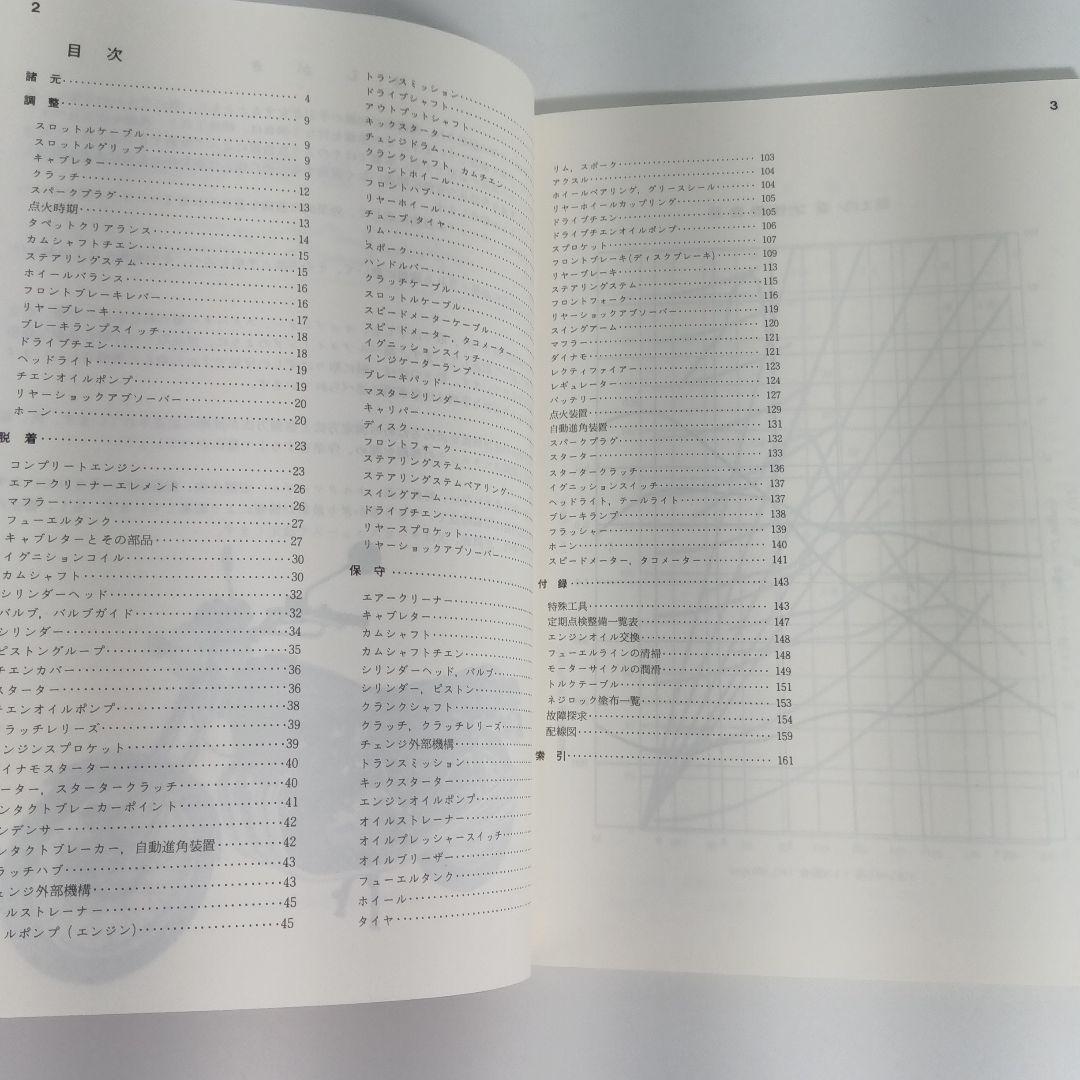 2
目 次
諸 元 4
調 整 9
スロットルケーブル 9
スロットルグリップ 9
キャブレター 9
クラッチ 12
スパークプラグ 13
点火時期 13
タペットクリアランス 14
カムシャフトチエン 15
ステアリングステム 15
ホイールバランス 16
フロントブレーキレバー 16
リヤーブレーキ 17
ブレーキランプスイッチ 18
ドライブチエン 18
ヘッドライト 19
チエンオイルポンプ 19
リヤーショックアブソーバー 20
ホーン 20
脱 着 23
コンプリートエンジン 23
エアークリーナーエレメント 26
マフラー 26
フューエルタンク 27
キャブレターとその部品 27
イグニションコイル 30
カムシャフト 30
シリンダーヘッド 32
バルブ, バルブガイド 32
シリンダー 34
ピストングループ 35
チエンカバー 36
スターター 36
チエンオイルポンプ 38
ラッチレリーズ 39
ンジンスプロケット 39
イナモスターター 40
ーター, スタータークラッチ 40
ンタクトブレーカーポイント 41
ンデンサー 42
ンタクトブレーカー, 自動進角装置 42
ラッチハブ 43
ェンジ外部機構 43
ルストレーナー 45
ルポンプ (エンジン) 45
トランスミッション
ドライブシャフト
アウトプットシャフト
キックスターター
チェンジドラム
クランクシャフト, カムチエン
フロントホイール
フロントハブ
リヤーホイール
チューブ, タイヤ
リム
スポーク
ハンドルバー
クラッチケーブル
スロットルケーブル
スピードメーターケーブル
スピードメーター, タコメーター
イグニッションスイッチ
インジケーターランプ
ブレーキパッド
マスターシリンダー
キャリパー
ディスク
フロントフォーク
ステアリングステム
ステアリングステムベアリング
スイングアーム
ドライブチエン
リヤースプロケット
リヤーショックアブソーバー
保 守
エアークリーナー
キャブレター
カムシャフト
カムシャフトチエン
シリンダーヘッド, バルブ
シリンダー, ピストン
クランクシャフト
クラッチ, クラッチレリーズ
チェンジ外部機構
トランスミッション
キックスターター
エンジンオイルポンプ
オイルストレーナー
オイルプレッシャースイッチ
オイルブリーザー
フューエルタンク
ホイール
タイヤ
3
リム, スポーク 103
アクスル 104
ホイールベアリング, グリースシール 104
リヤーホイールカップリング 105
ドライブチエン 105
ドライブチエンオイルポンプ 106
スプロケット 107
フロントブレーキ(ディスクブレーキ) 109
リヤーブレーキ 113
ステアリングステム 115
フロントフォーク 116
リヤーショックアブソーバー 119
スイングアーム 120
マフラー 121
ダイナモ 121
レクティファイアー 123
レギュレーター 124
バッテリー 127
点火装置 129
自動進角装置 131
スパークプラグ 132
スターター 133
スタータークラッチ 136
イグニッションスイッチ 137
ヘッドライト, テールライト 137
ブレーキランプ 138
フラッシャー 139
ホーン 140
スピードメーター, タコメーター 141
付 録 143
特殊工具 143
定期点検整備一覧表 147
エンジンオイル交換 148
フューエルラインの清掃 148
モーターサイクルの潤滑 149
トルクテーブル 151
ネジロック塗布一覧 153
故障探求 154
配線図 159
索 引 161